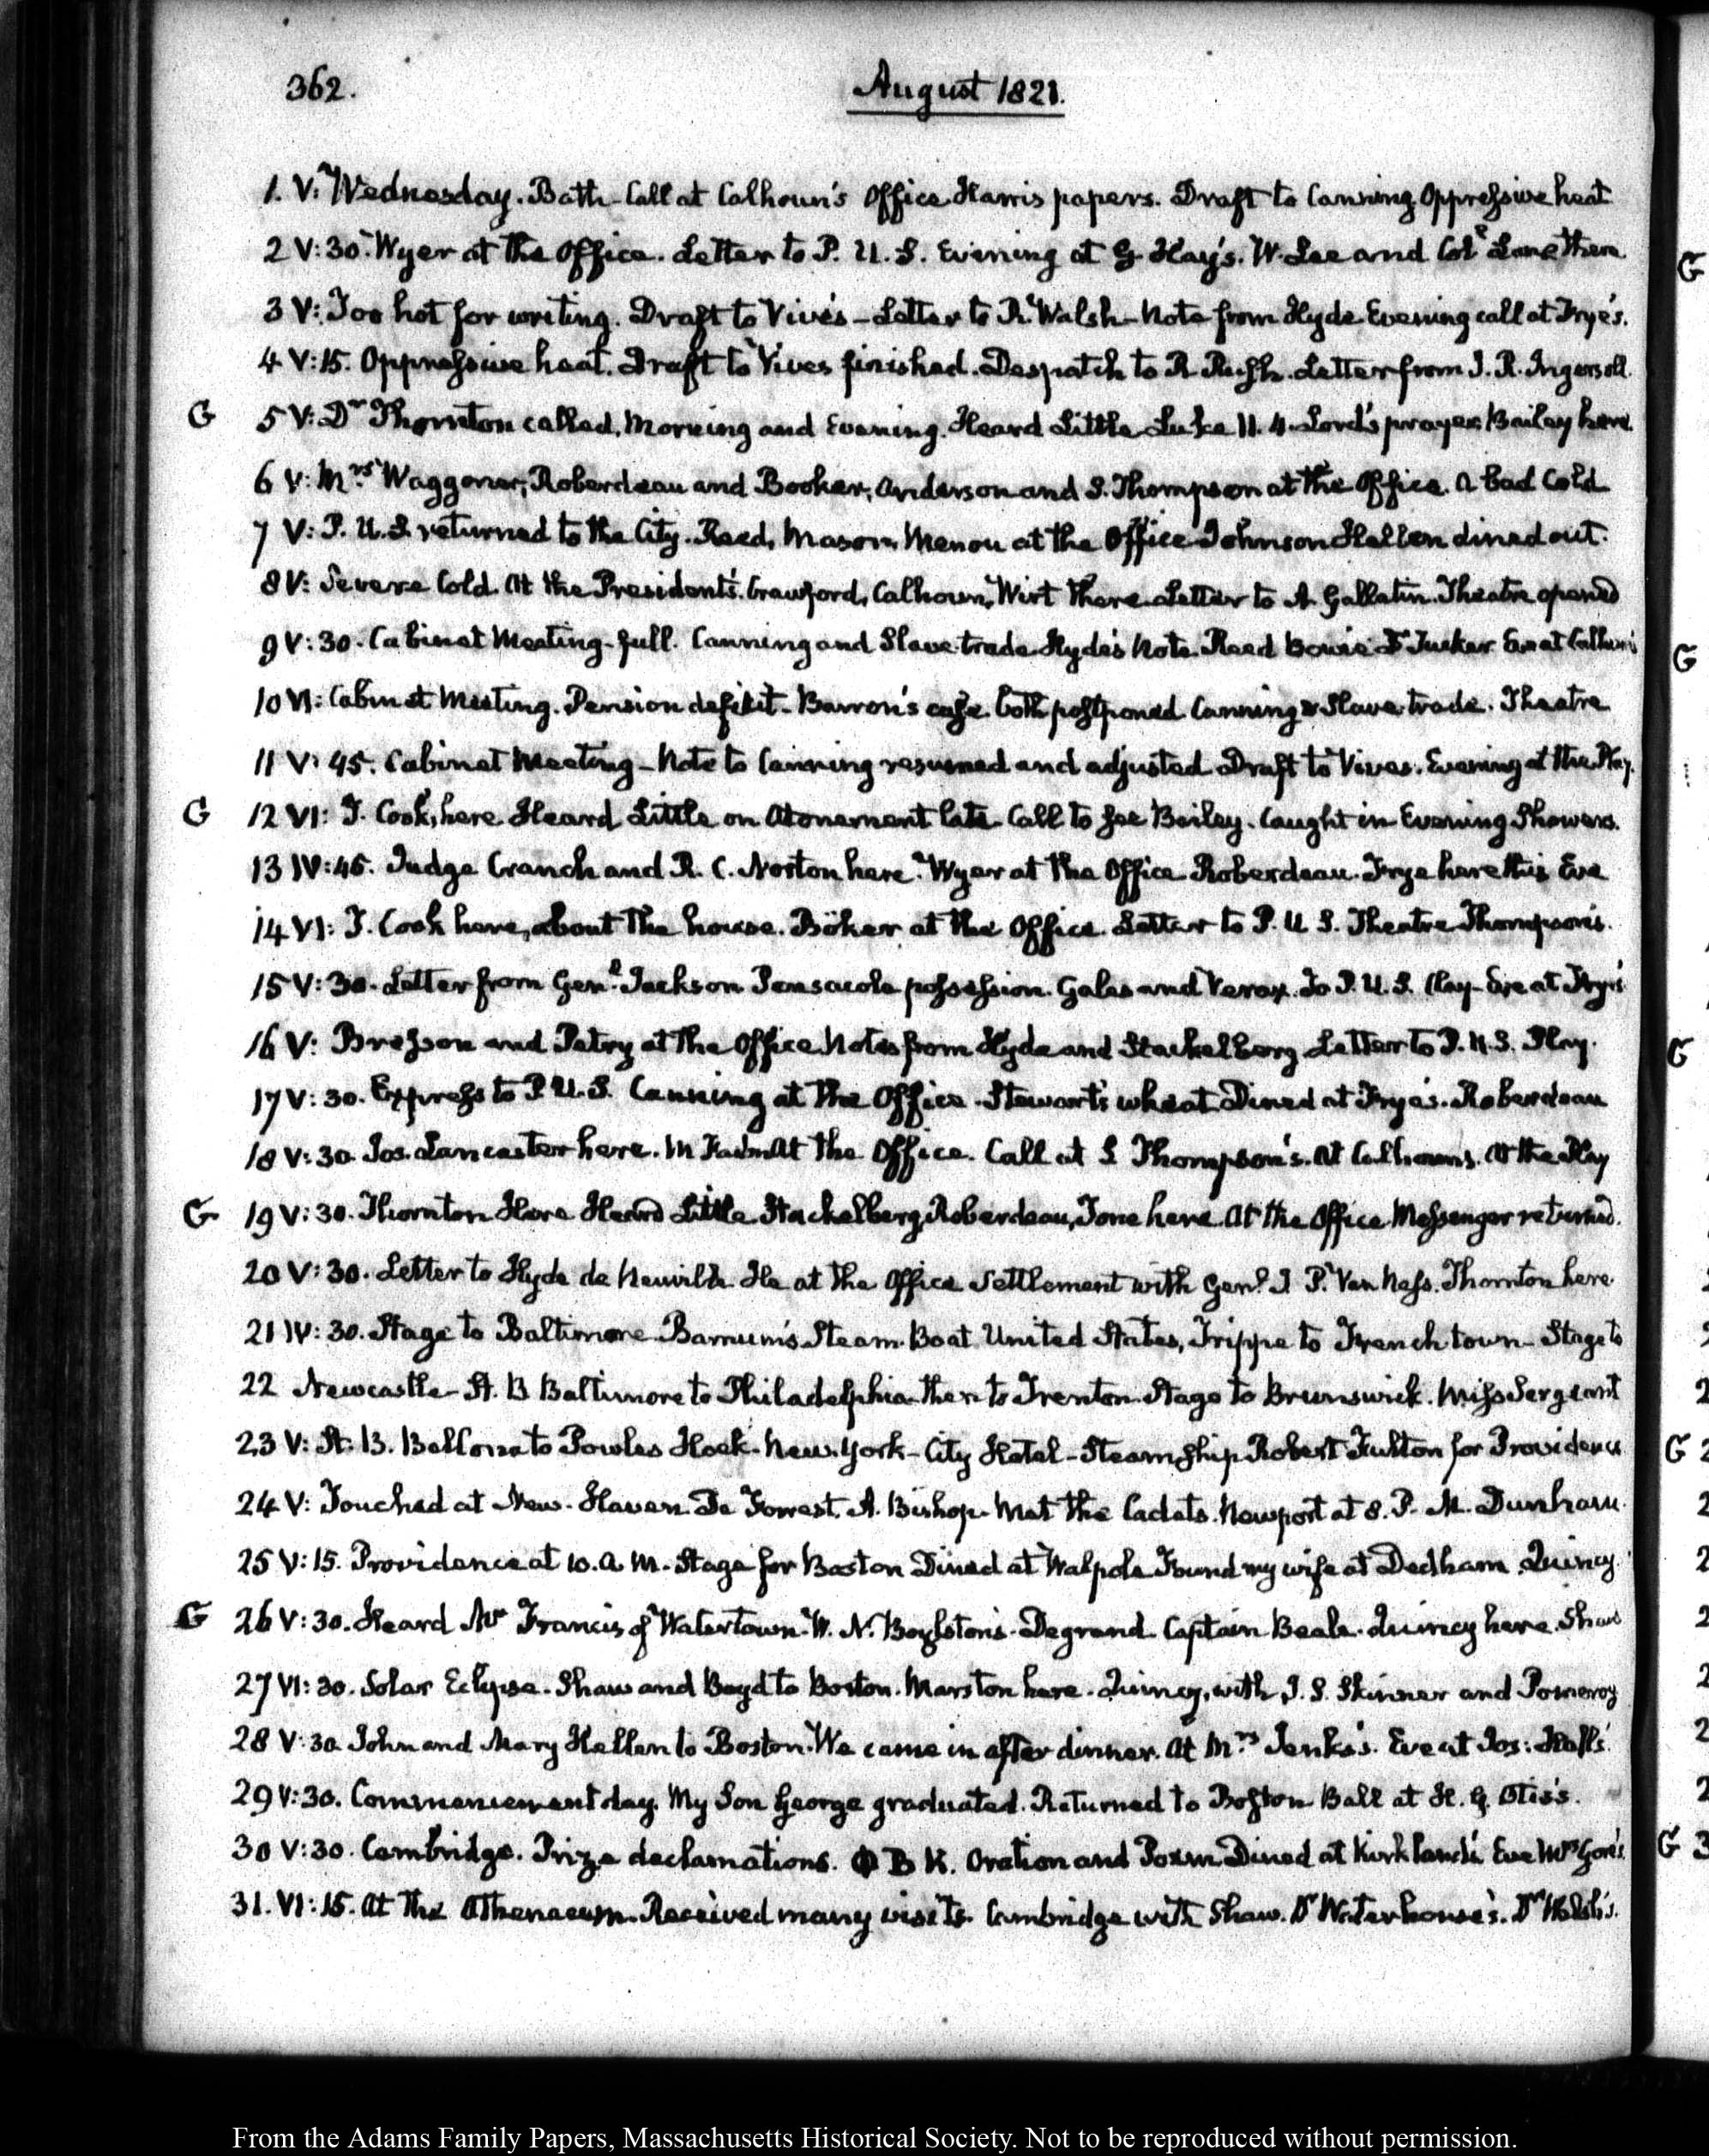 362.
August 1821.
1. V: Wednesday. Bath - Call at Calhoun's Office Harris papers. Draft to Canning Oppressive heat
2 V:30. Wyer at the Office. Letter to P. U. S. Evening at G. Hay's. W. Lee and Col.l Lane there.
3 V: Too hot for writing. Draft to Vivés - Letter to R. Walsh - Note from Hyde Evening call at Frye's.
4 V:15. Oppressive heat. Draft to Vives finished. Despatch to R Rush. Letter from J. R. Ingersoll.
G 5 V: Dr Thornton called, Morning and Evening. Heard Little Luke 11. 4. Lord's prayer. Bailey here.
6 V: Mrs Waggoner, Roberdeau and Booker, Anderson and S. Thompson at the Office. A bad Cold
7 V: P. U.S. returned to the City. Reed, Mason, Menou at the Office Johnson Hellen dined out.
8 V: Severe Cold. At the President's. Crawford, Calhoun, Wirt there. Letter to A. Gallatin. Theatre opened
9 V:30. Cabinet Meeting - full. Canning and Slave trade Hyde's Note. Reed Bowie Tucker. Eve at Calhoun's
10 VI: Cabinet Meeting. Pension deficit - Barron's case both postponed Canning & Slave trade. Theatre
11 V:45. Cabinet Meeting - Note to Canning resumed and adjusted Draft to Vives. Evening at the Play.
G 12 VI: J. Cook, here Heard Little on Atonement late Call to see Bailey. Caught in Evening Showers.
13 IV:45. Judge Cranch and R. C. Norton here. Wyer at the Office Roberdeau. Frye here this Eve
14 VI: J. Cook here, about the house. Böker at the Office. Letter to P. U S. Theatre Thompson's.
15 V:30. Letter from Gen.l Jackson Pensacola possession. Gales and Verax. To P. U. S. Clay - Eve at Frye's
16 V: Bresson and Petry at the Office Notes from Hyde and Stackelberg Letter to P. U. S. Play.
17 V:30. Express to P. U. S. Canning at the Office. Stewart's wheat Dined at Frye's. Roberdeau
18 V:30 Jos. Lancaster here. At the Office. Call at S Thompson's. At Calhoun's. At the Play
G 19 V:30. Thornton Here Heard Little Stackelberg, Roberdeau, Jone here At the Office Messenger returned.
20 V:30. Letter to Hyde de Neuville He at the Office Settlement with Gen.l J. P. Van Ness. Thornton here
21 IV:30. Stage to Baltimore Barnum's Steam Boat United States, Trippe to French town - Stage to
22 Newcastle - St. B Baltimore to Philadelphia then to Trenton Stage to Brunswick. Miss Sergeant
23 V: St. B. Bellona to Powles Hook. New York - City Hotel - Steam Ship Robert Fulton for Providence
24 V: Touched at New-Haven De Forrest. A. Bishop. Met the Cadets. Newport at 8. P. M. Dunham.
25 V:15. Providence at 10. A. M. Stage for Boston Dined at Walpole Found my wife at Dedham. Quincy.
G 26 V:30. Heard Mr Francis of Watertown. W. N. Boylston's. Degrand Captain Beale. Quincy here. Shaw
27 VI:30. Solar Eclipse. Shaw and Boyd to Boston. Marston here. Quincy, with J. S. Skinner and Pomeroy
28 V:30 John and Mary Hellen to Boston. We came in after dinner. At Mrs Jenks's. Eve at Jos: Hall's.
29 V:30. Commencement day. My Son George graduated. Returned to Boston Ball at H. G. Otis's.
30 V:30. Cambridge. Prize declamations. Φ B K. Oration and Poem Dined at Kirkland's Eve Mrs Gore's
31. VI:15. At the Athenaeum. Received many visits. Cambridge with Shaw. Dr Waterhouse's. Dr Welsh's.
G
G
G
G
G 3
From the Adams Family Papers, Massachusetts Historical Society. Not to be reproduced without permission.